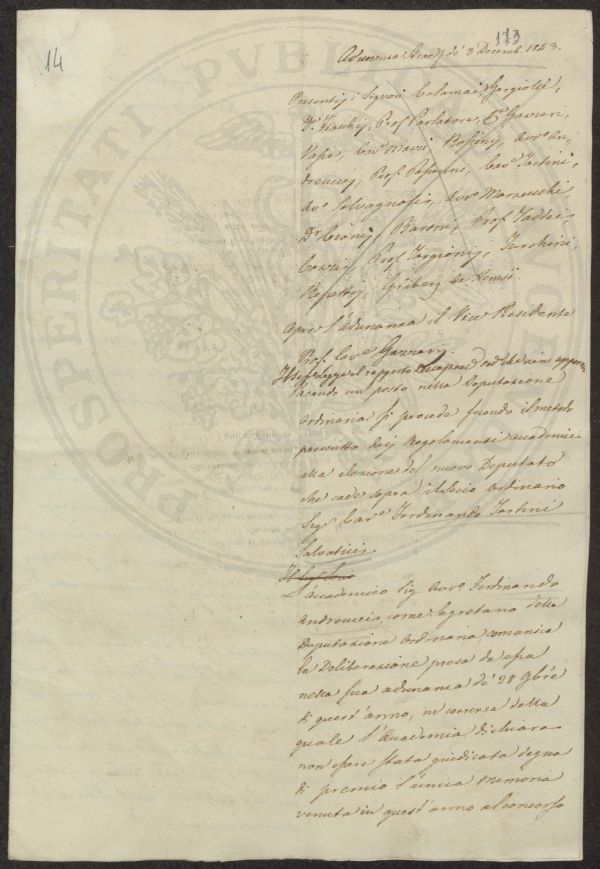 14
173
Adunanza de' 3 Decemb. 1843.
Presenti i Signori Calamai, Gargiolli,
Dr. Franchi, Prof. Parlatore, Gazzeri,
Cav. Mazzi, Rossini, Avv. An-
dreucci, Prof. Passerini, Cav.e Tartini,
Av. Salvagnoli, Avv. Marzucchi
Dr. Cioni, Baroni, Prof. Taddei,
Prof. Targioni, Turchini,
Repetti, Gräberg da Hemsö.
Apre l'adunanza il Vice Presidente
Prof. Cav.e Gazzeri.
Il Seg. legge il rapporto
Vacando un posto nella Deputazione
Ordinaria si procede secondo il metodo
prescritto dai Regolamenti accademici
alla elezione del nuovo Deputato
che cade sopra il Socio Ordinario
Sig. Cav.e Ferdinando Tartini
Salvatici.
L'Accademico Sig. Avv. Ferdinando
Andreucci, come Segretario della
Deputazione Ordinaria, comunica
la Deliberazione presa da essa
nella sua adunanza de' 28 9bre
di quest'anno, in coerenza della
quale l'Accademia dichiara
non essere stata giudicata degna
di premio l'unica Memoria
venuta in quest'anno al concorso
PROSPERITATI PUBLICAE